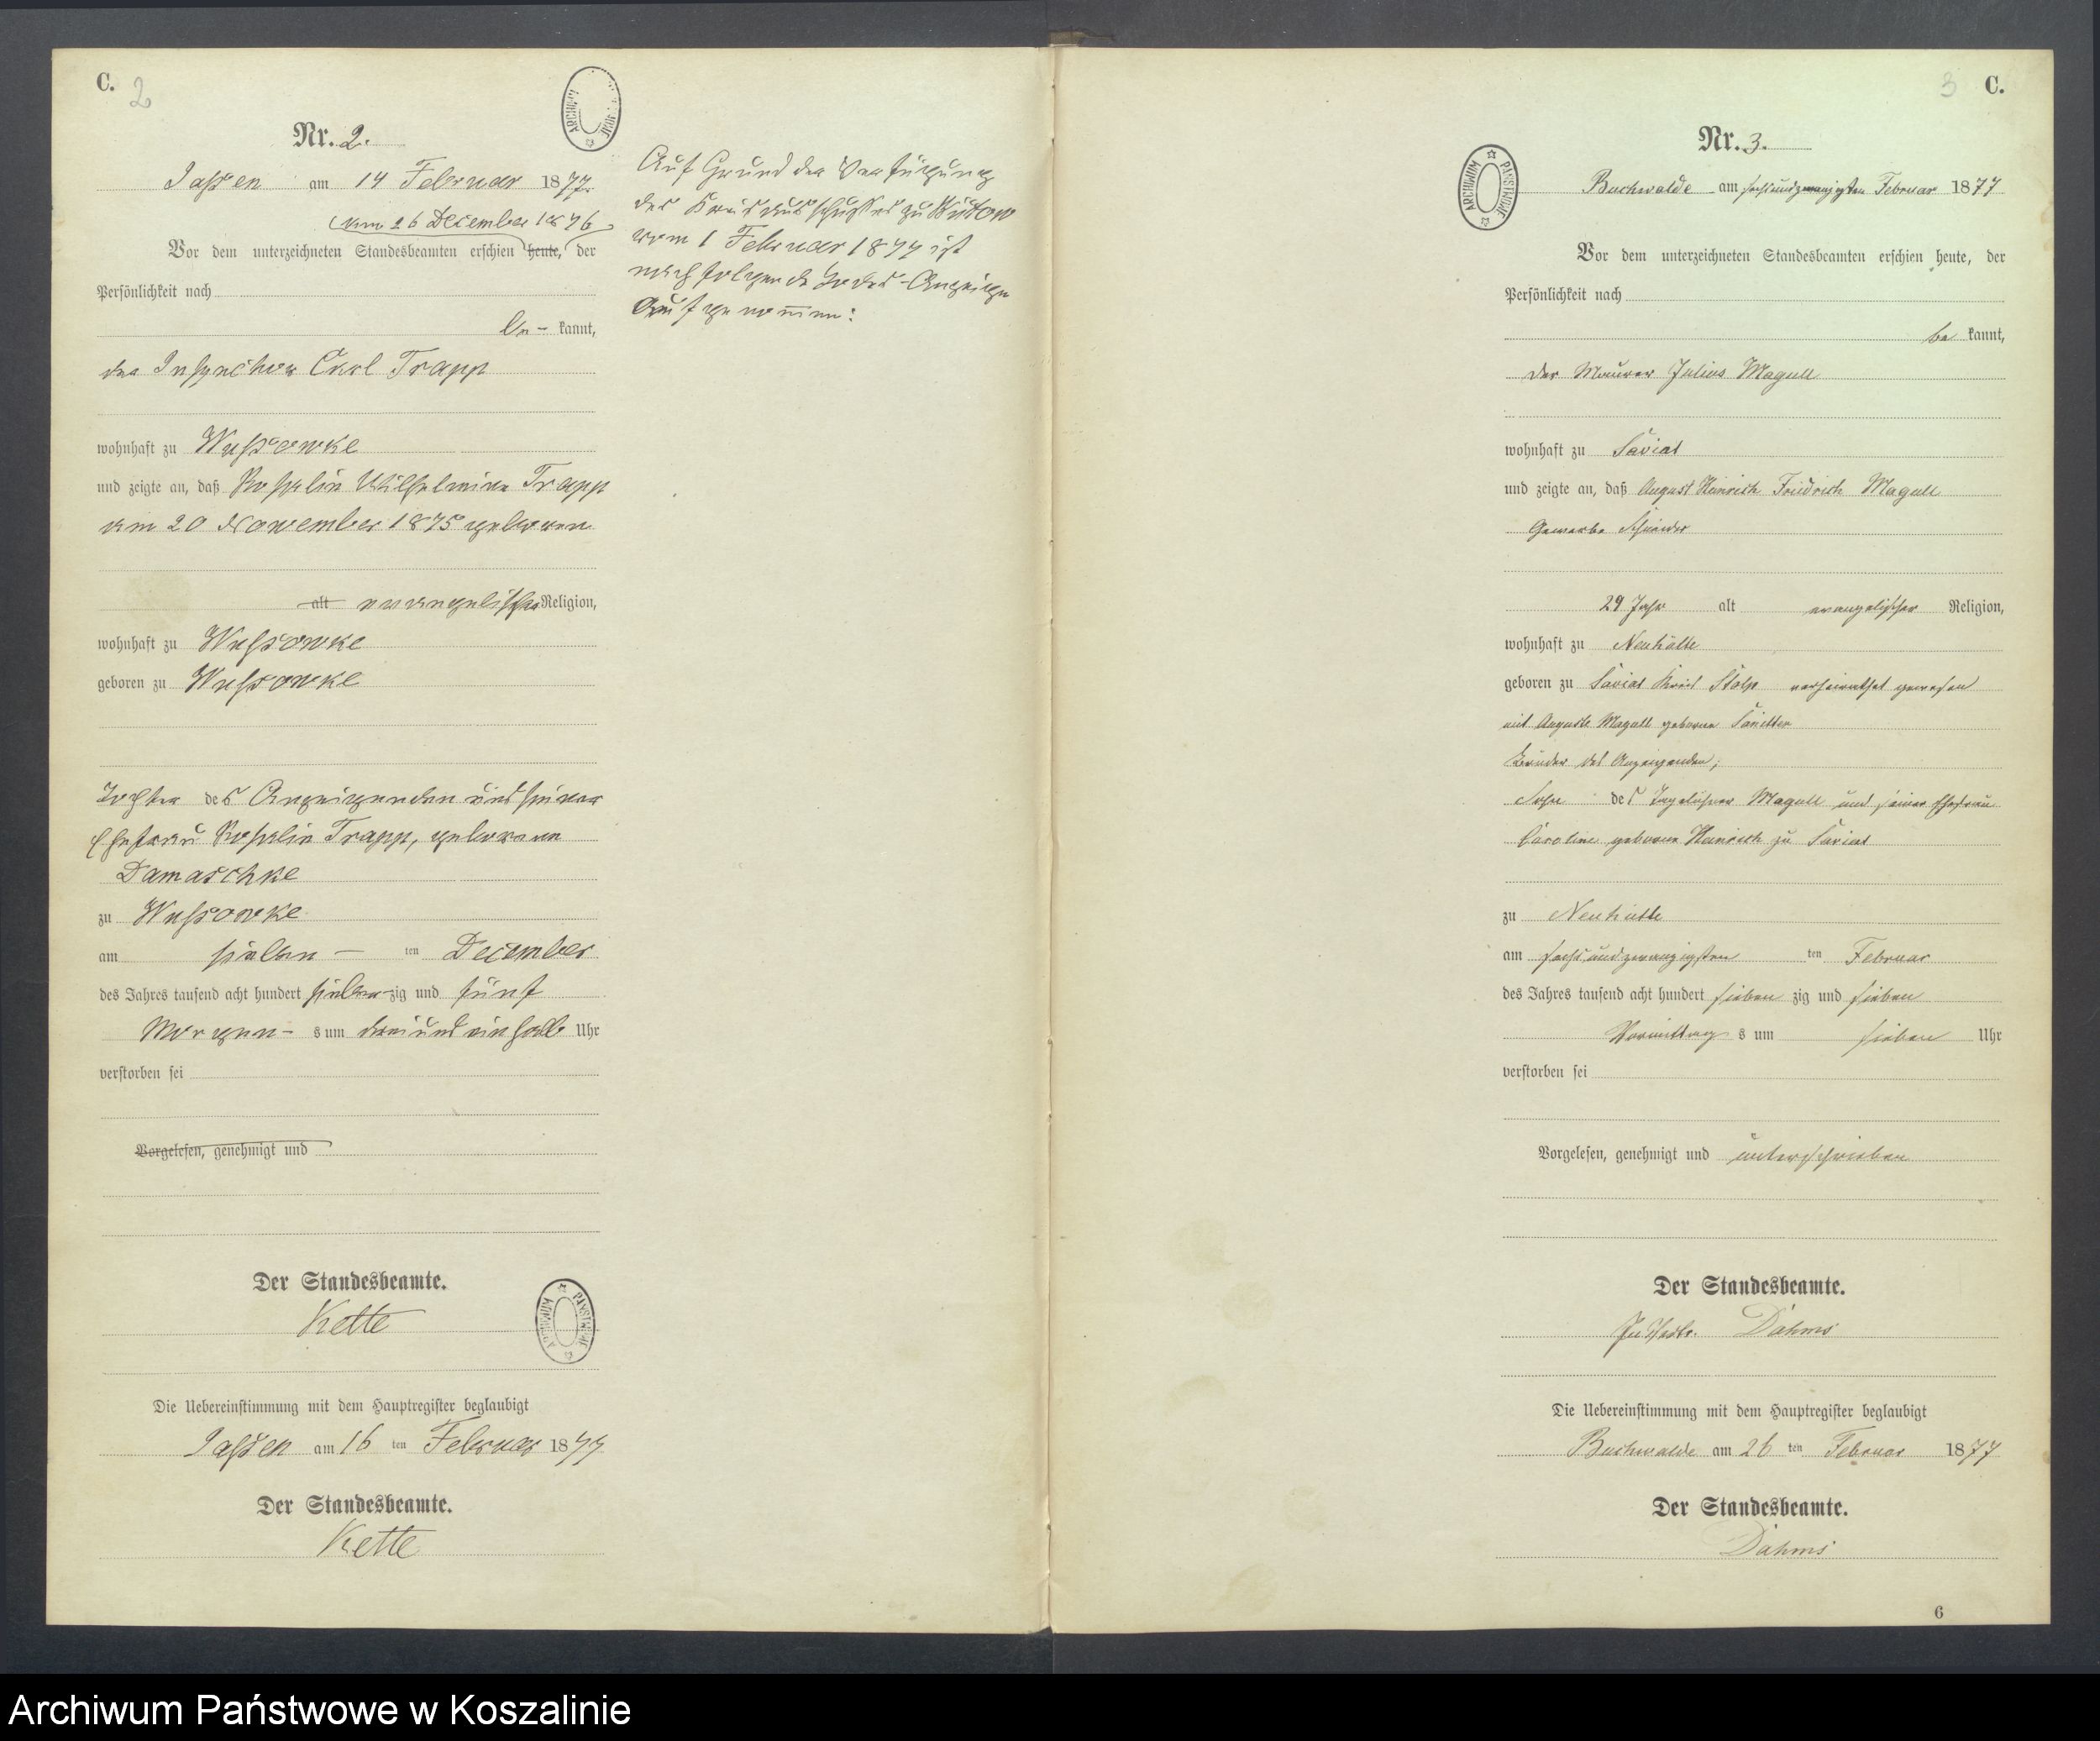 C.
2
Nr. 2.
Jassen am 14 Februar 1877.
am 26 December 1876
Vor dem unterzeichneten Standesbeamten erschien heute, der
Persönlichkeit nach
be- kannt,
der Inspector Carl Trapp
wohnhaft zu Wussowke
und zeigte an, daß Rosalie Wilhelmine Trapp
am 20 November 1875 geboren
alt evangelischer Religion,
wohnhaft zu Wussowke
geboren zu Wussowke
Tochter des Anzeigenden und seiner
Ehefrau Rosalie Trapp, geborene
Damaschke
zu Wussowke
am sieben- ten December
des Jahres tausend acht hundert siebenzig und fünf
Morgen- s um drei und ein halb Uhr
verstorben sei
Vorgelesen, genehmigt und
Der Standesbeamte.
Kette
Die Uebereinstimmung mit dem Hauptregister beglaubigt
Jassen am 16 ten Februar 1877
Der Standesbeamte.
Kette
ARCHIWUM PAŃSTWOWE
Auf Grund der Verfügung
des Kreisausschusses zu Bütow
vom 1 Februar 1877 ist
nachfolgende Todes-Anzeige
aufgenommen:
ARCHIWUM PAŃSTWOWE
3 C.
Nr. 3.
ARCHIWUM PAŃSTWOWE
Buchwalde am sechsundzwanzigsten Februar 1877
Vor dem unterzeichneten Standesbeamten erschien heute, der
Persönlichkeit nach
be kannt,
der Maurer Julius Magull
wohnhaft zu Saviat
und zeigte an, daß August Heinrich Friedrich Magull
Gewerbe Schneider
29 Jahr alt evangelischer Religion,
wohnhaft zu Neuhütte
geboren zu Saviat Kreis Stolp verheirathet gewesen
mit Auguste Magull geborene
Bruder des Anzeigenden;
Sohn des Tagelöhner Magull und seiner Ehefrau
Caroline geborene Heinrich zu Saviat
zu Neuhütte
am sechsundzwanzigsten ten Februar
des Jahres tausend acht hundert sieben zig und sieben
Vormittag s um sieben Uhr
verstorben sei
Vorgelesen, genehmigt und unterschrieben
Der Standesbeamte.
Dahms
Die Uebereinstimmung mit dem Hauptregister beglaubigt
Buchwalde am 26 ten Februar 1877
Der Standesbeamte.
Dahms
6
Archiwum Państwowe w Koszalinie